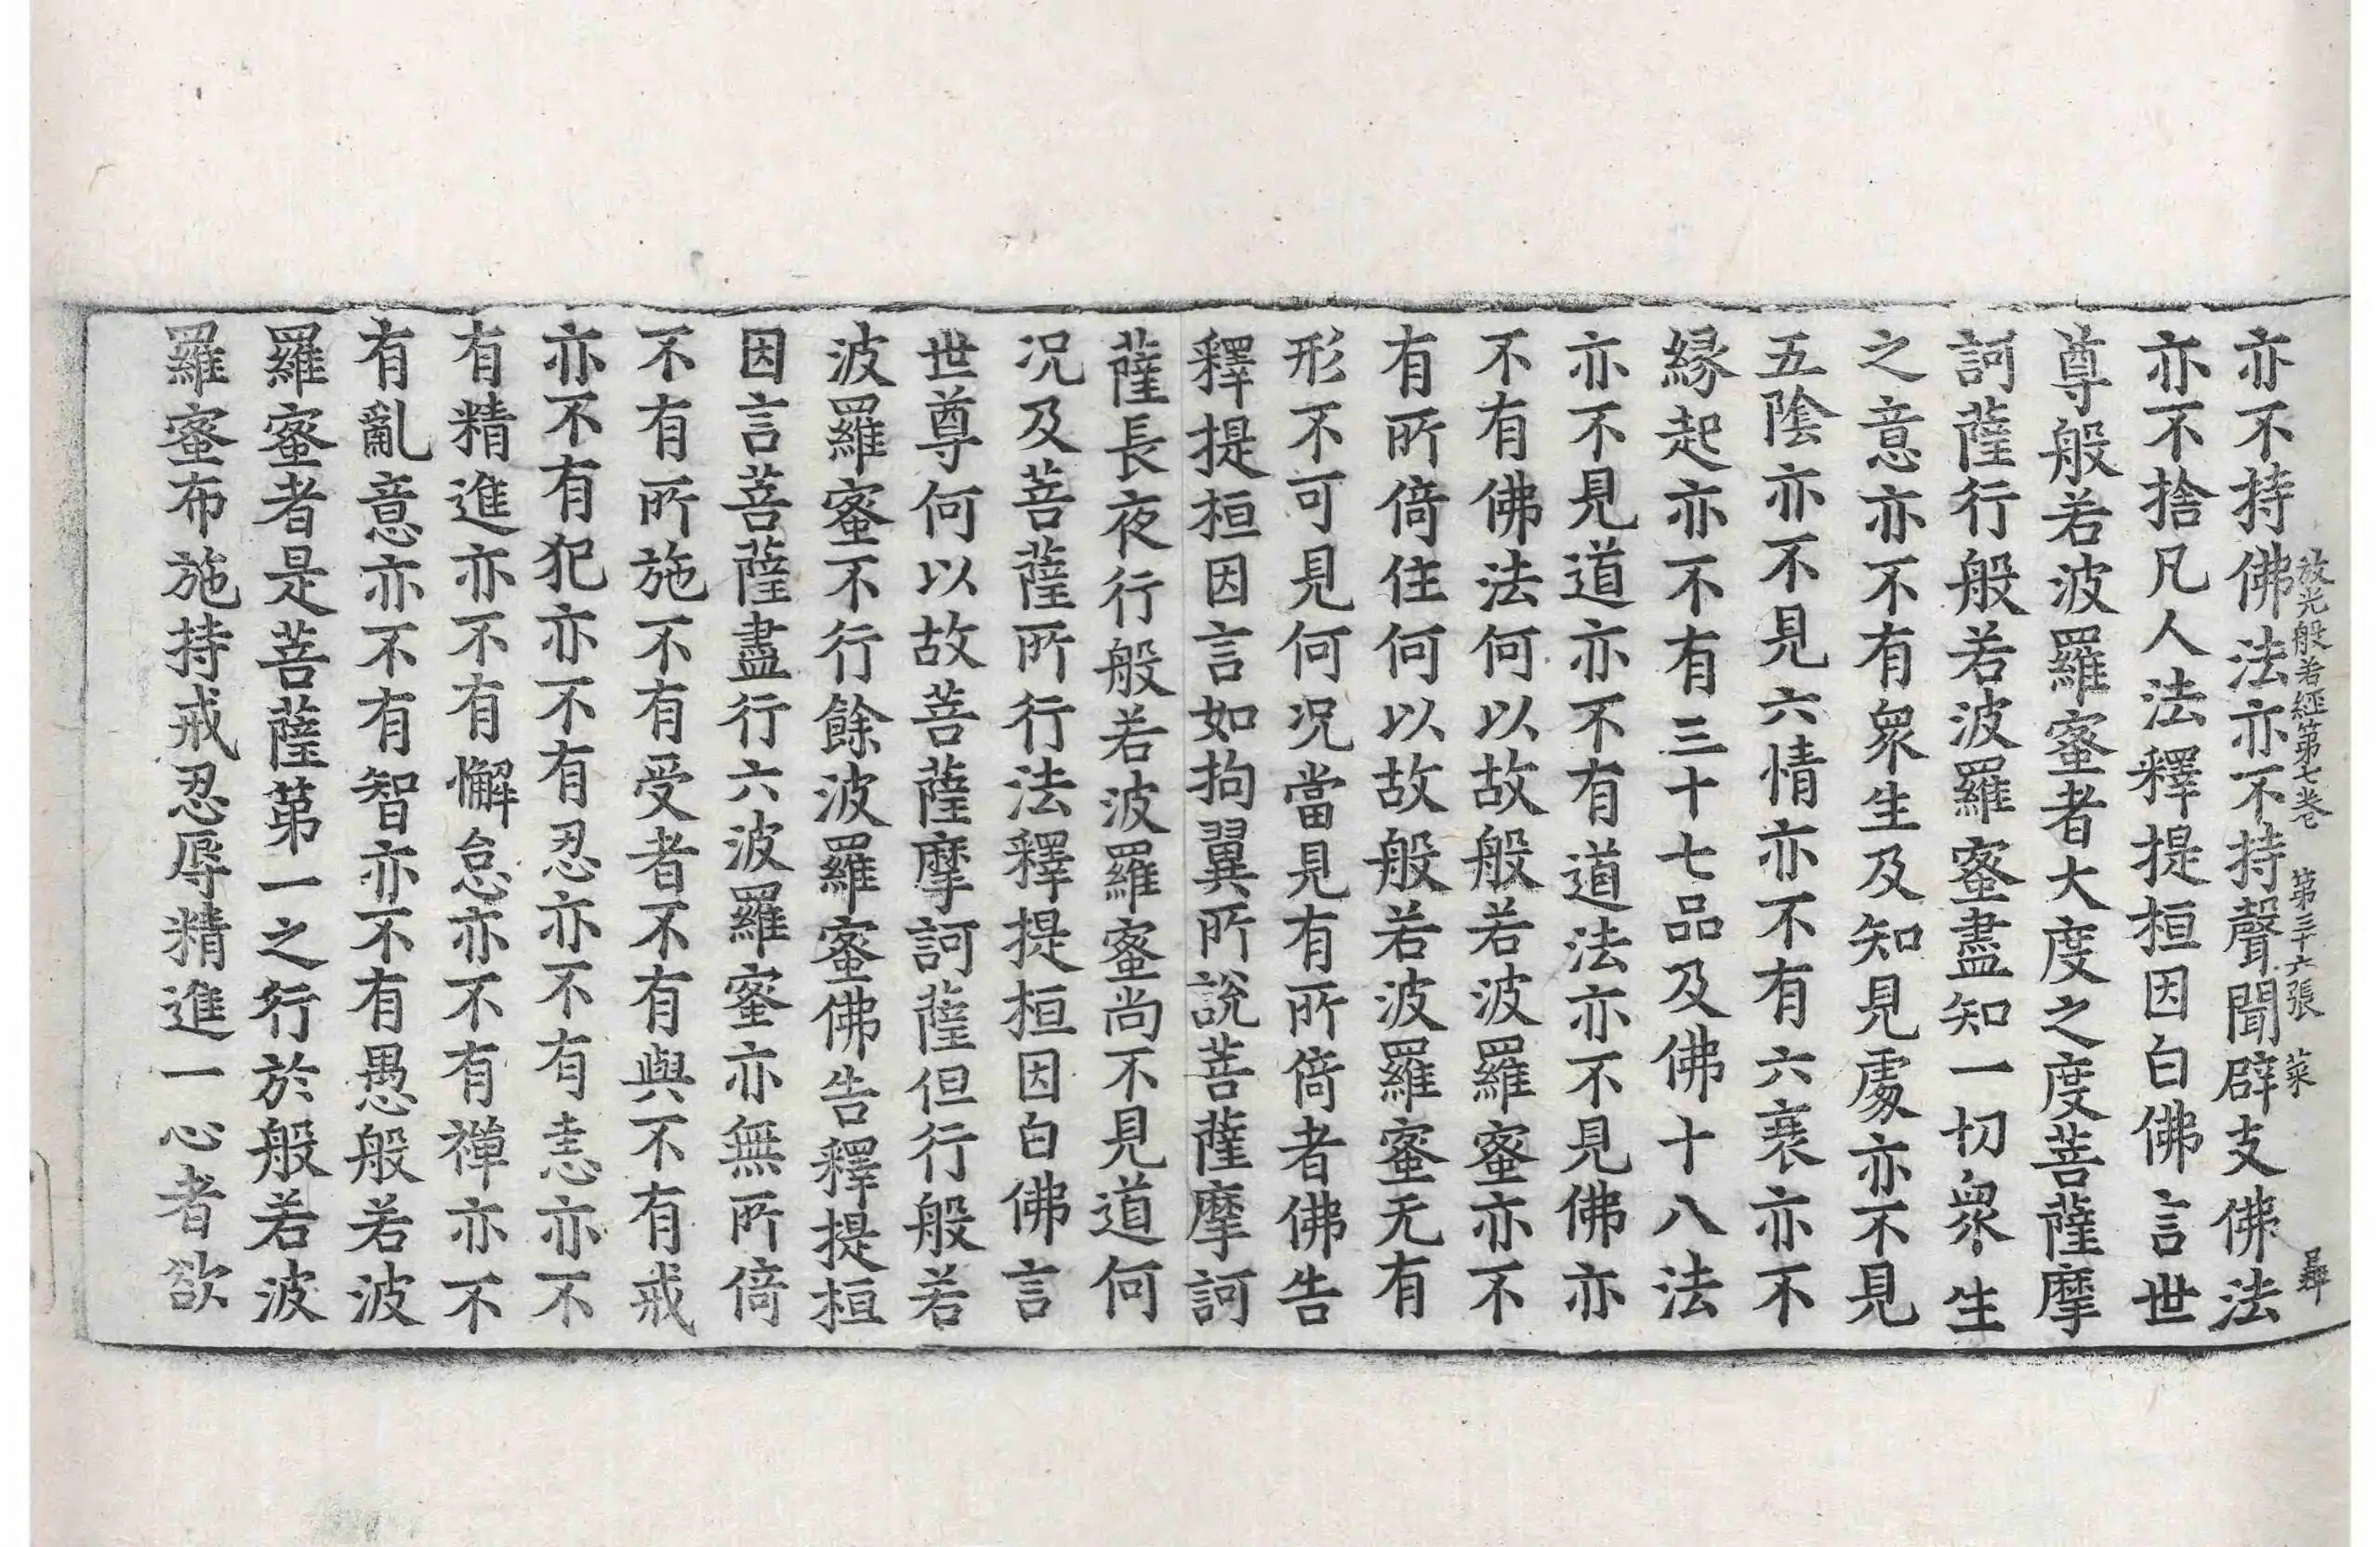 放光般若經第七卷　第三十六張　菜
亦不持佛法亦不持聲聞辟支佛法
亦不捨凡人法釋提桓因白佛言世
尊般若波羅蜜者大度之度菩薩摩
訶薩行般若波羅蜜盡知一切衆生
之意亦不有衆生及知見處亦不見
五陰亦不見六情亦不有六衰亦不
緣起亦不有三十七品及佛十八法
亦不見道亦不有道法亦不見佛亦
不有佛法何以故般若波羅蜜亦不
有所倚住何以故般若波羅蜜无有
形不可見何況當見有所倚者佛告
釋提桓因言如拘翼所說菩薩摩訶
薩長夜行般若波羅蜜尚不見道何
況及菩薩所行法釋提桓因白佛言
世尊何以故菩薩摩訶薩但行般若
波羅蜜不行餘波羅蜜佛告釋提桓
因言菩薩盡行六波羅蜜亦無所倚
不有所施不有受者不有與不有戒
亦不有犯亦不有忍亦不有恚亦不
有精進亦不有懈怠亦不有禪亦不
有亂意亦不有智亦不有愚般若波
羅蜜者是菩薩第一之行於般若波
羅蜜布施持戒忍辱精進一心者欲